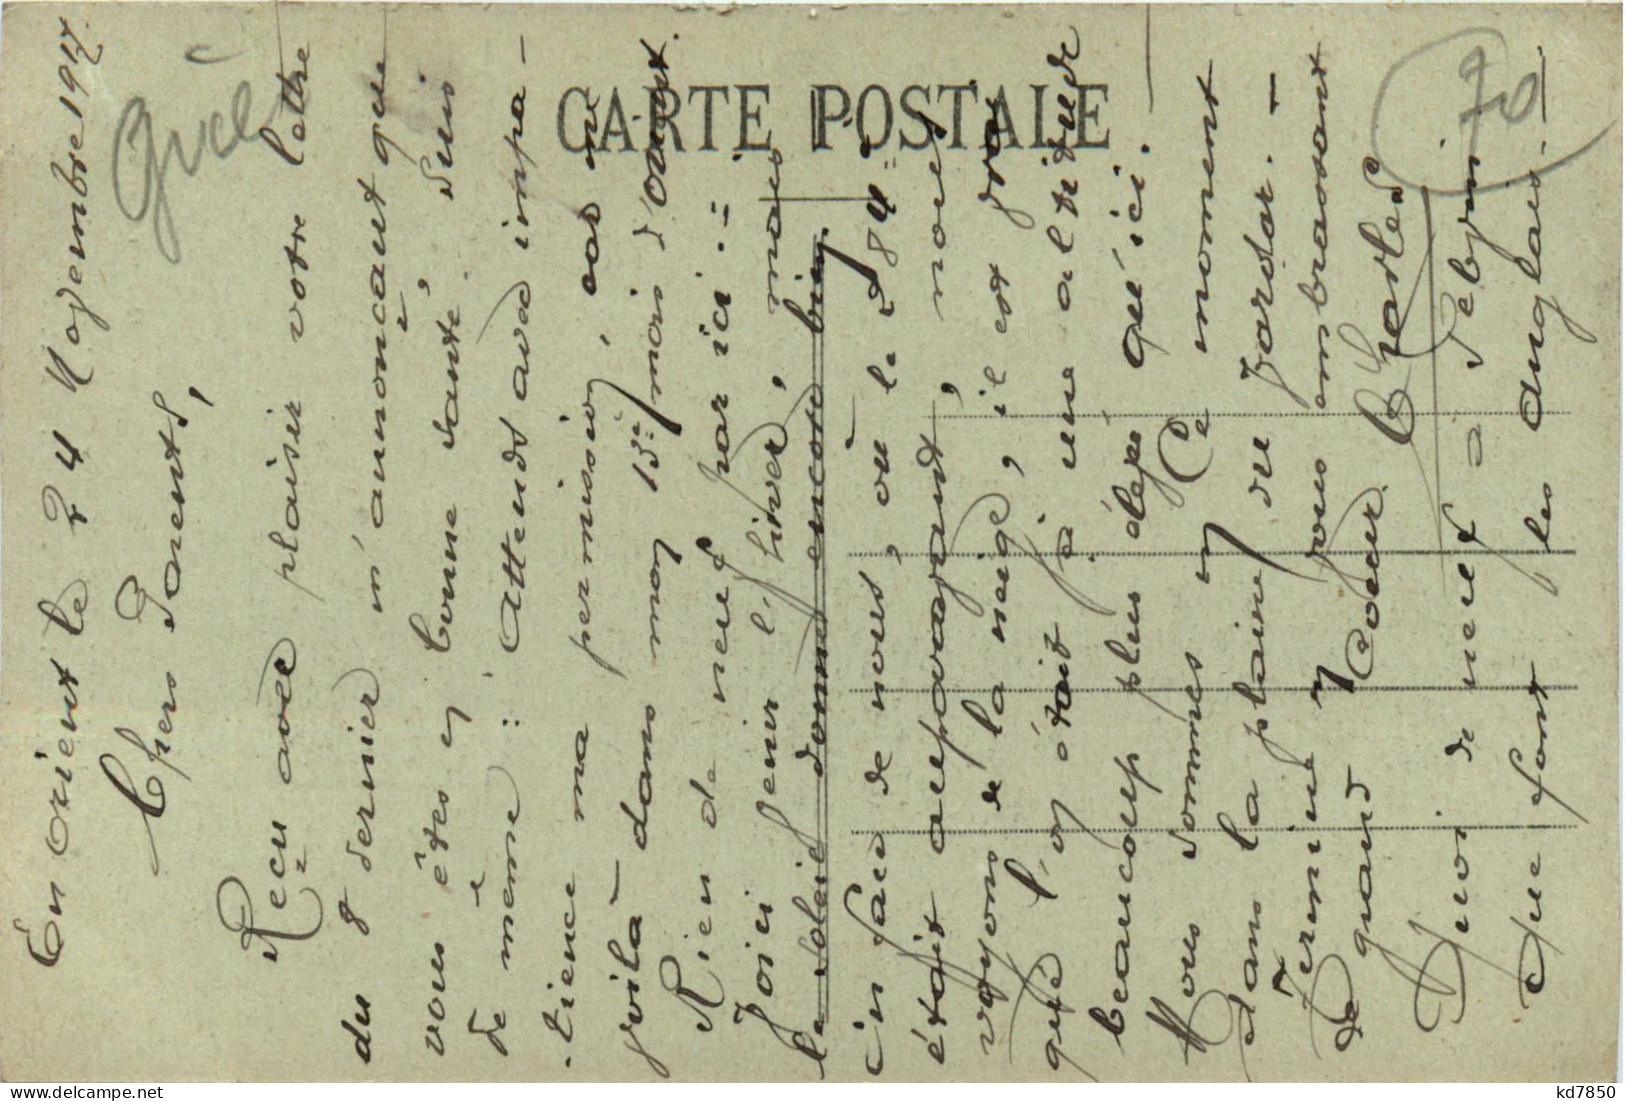 En orient le 24 Novembre 1917.
Chers Parents,
Reçu avec plaisir votre lettre
du 8 dernier m'annoncant que
vous êtes en bonne santé, suis
de même : Attends avec impa-
-tience ma permission, car me
voilà dans mon 15e mois d'orient.
Rien de neuf par ici.=
Voici venir l'hiver, mais
le soleil donne encore bien,
en face de nous, où le 84e
était auparavant, nous
voyons de la neige, il est vrai
que l'on était à une altitude
beaucoup plus élevé qu'ici.
Nous sommes en ce moment
dans la plaine du Vardar.-
Termine en vous embrassant
de grand coeur. Charles
Quoi de neuf à
Que font les anglais.-
CARTE POSTALE
Grèce
70
kd7850